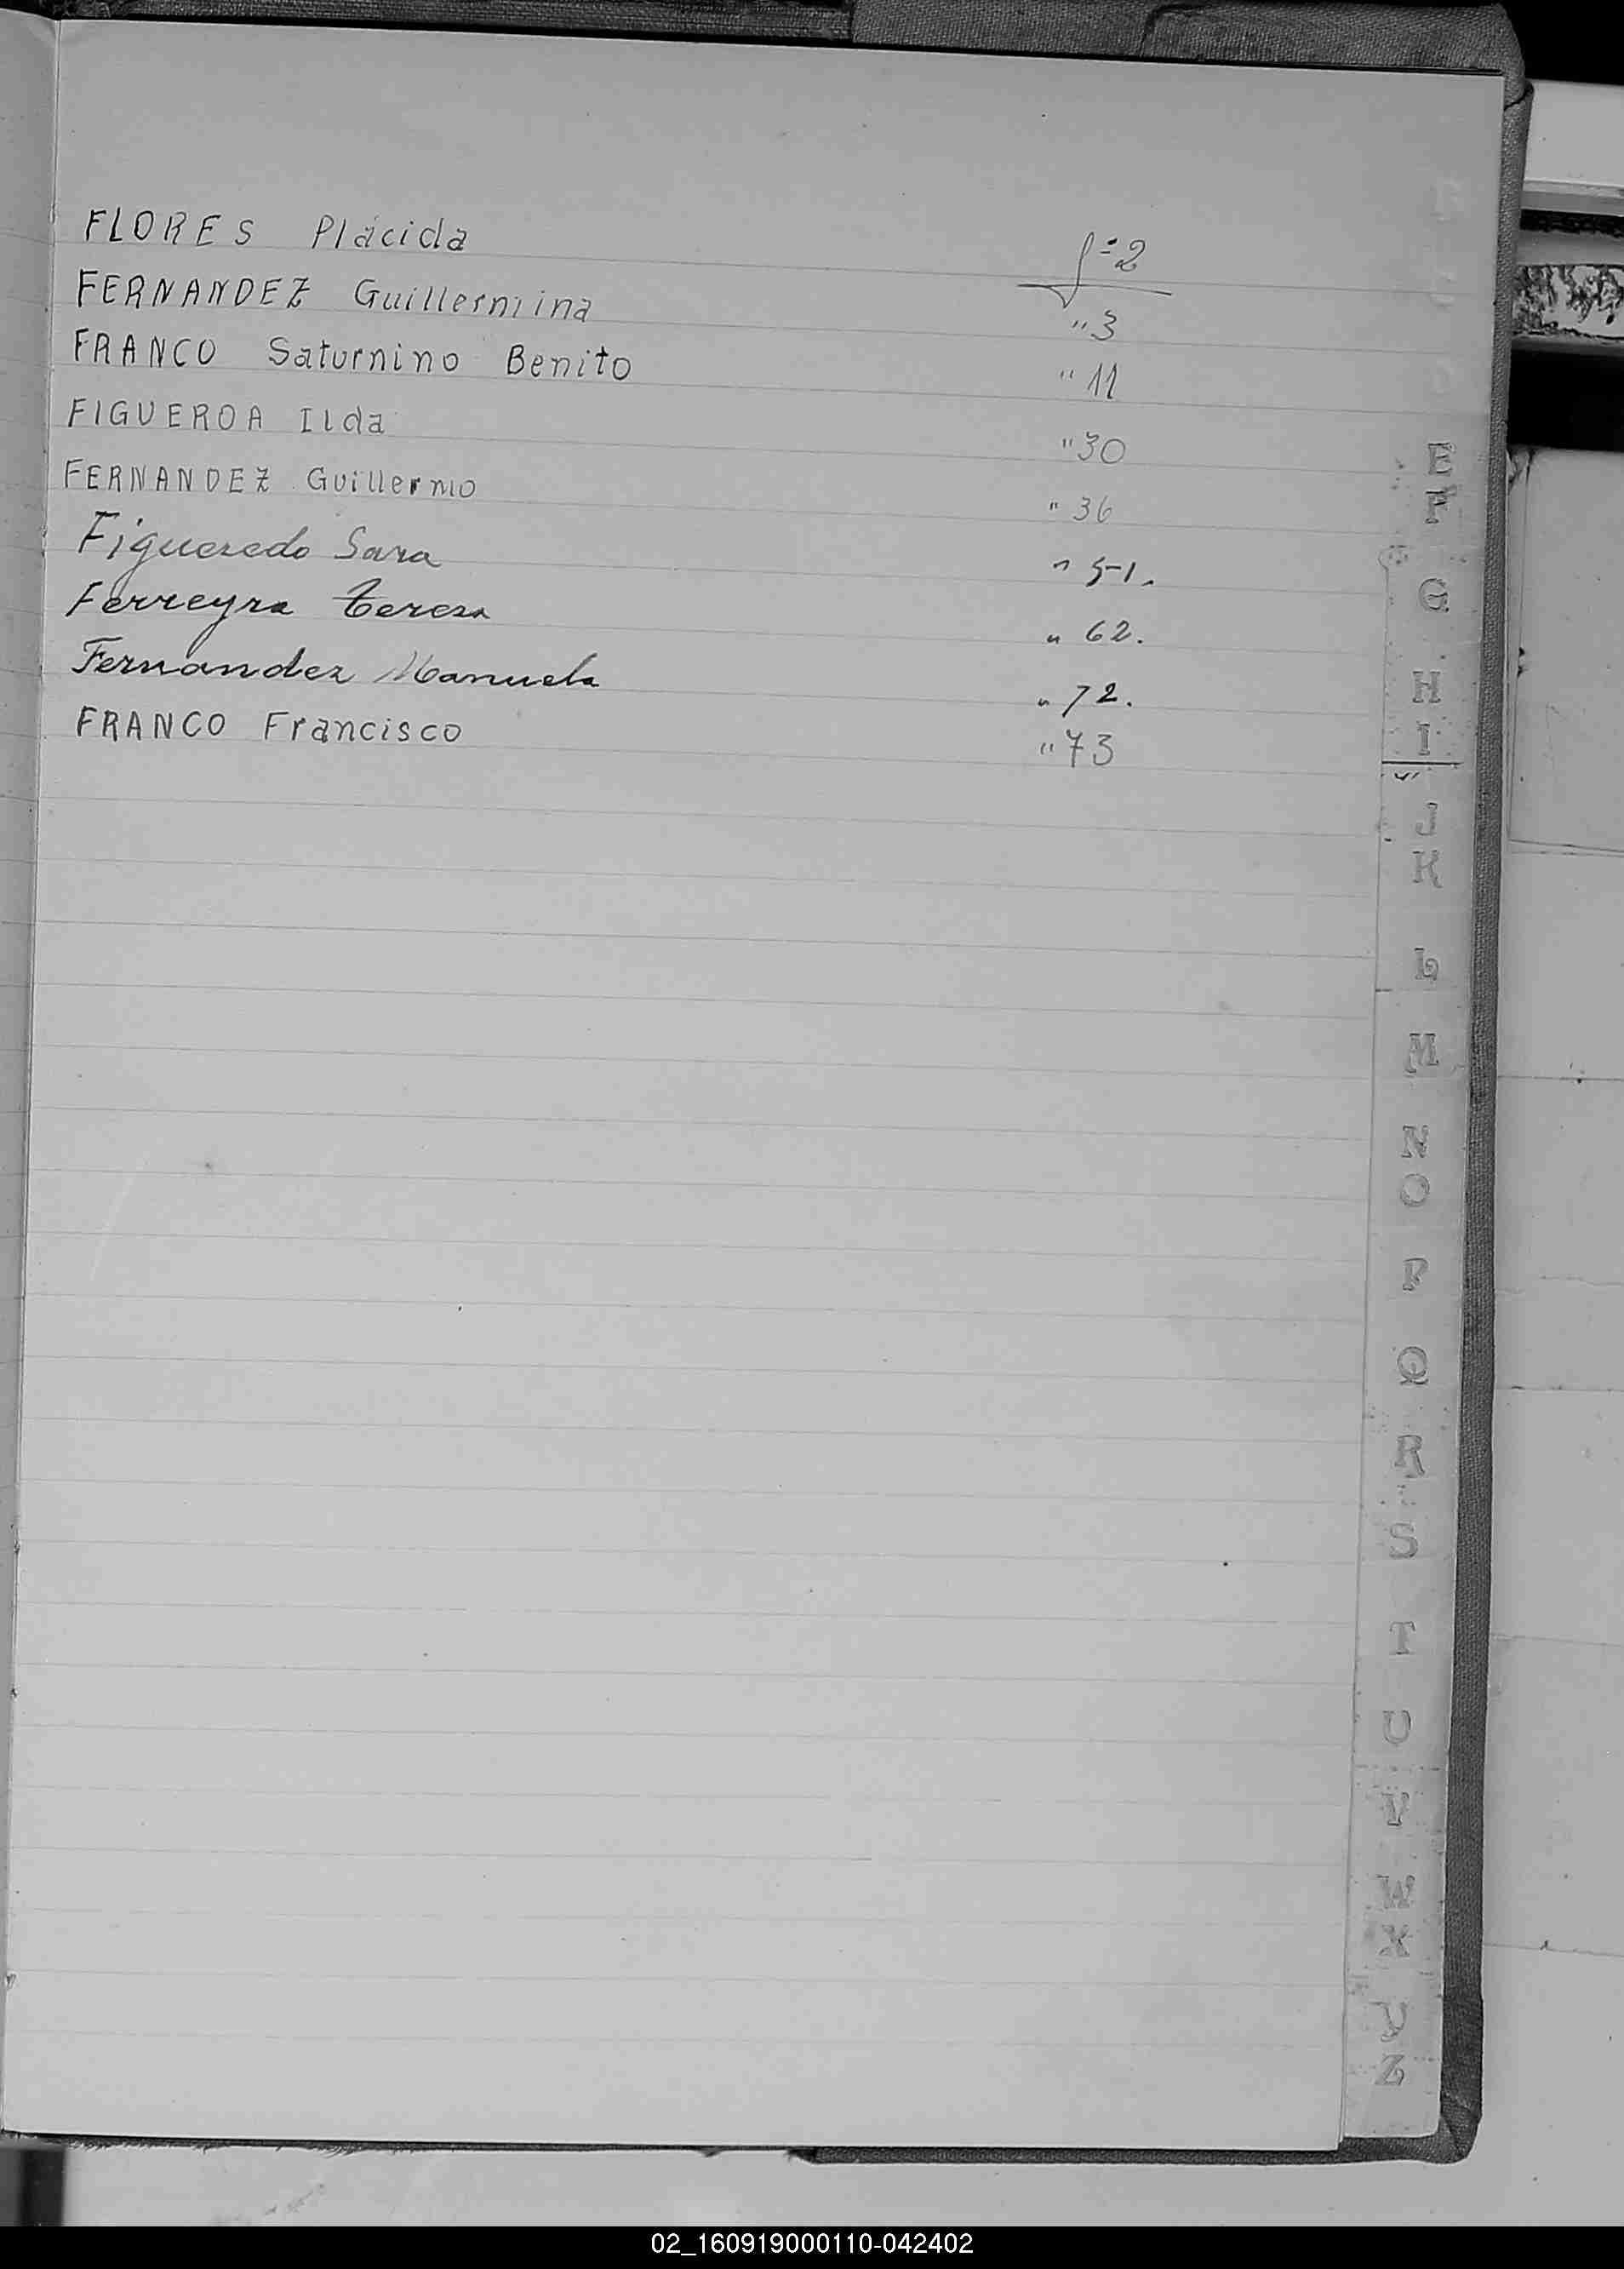 FLORES Plácida fº 2
FERNANDEZ Guillermina " 3
FRANCO Saturnino Benito " 11
FIGUEROA Ilda " 30
FERNANDEZ Guillermo " 36
Figueredo Sara " 51.
Ferreyra Teresa " 62.
Fernandez Manuela " 72.
FRANCO Francisco " 73
E
F
G
H
I
J
K
L
M
N
O
P
Q
R
S
T
U
V
W
X
Y
Z
02_160919000110-042402